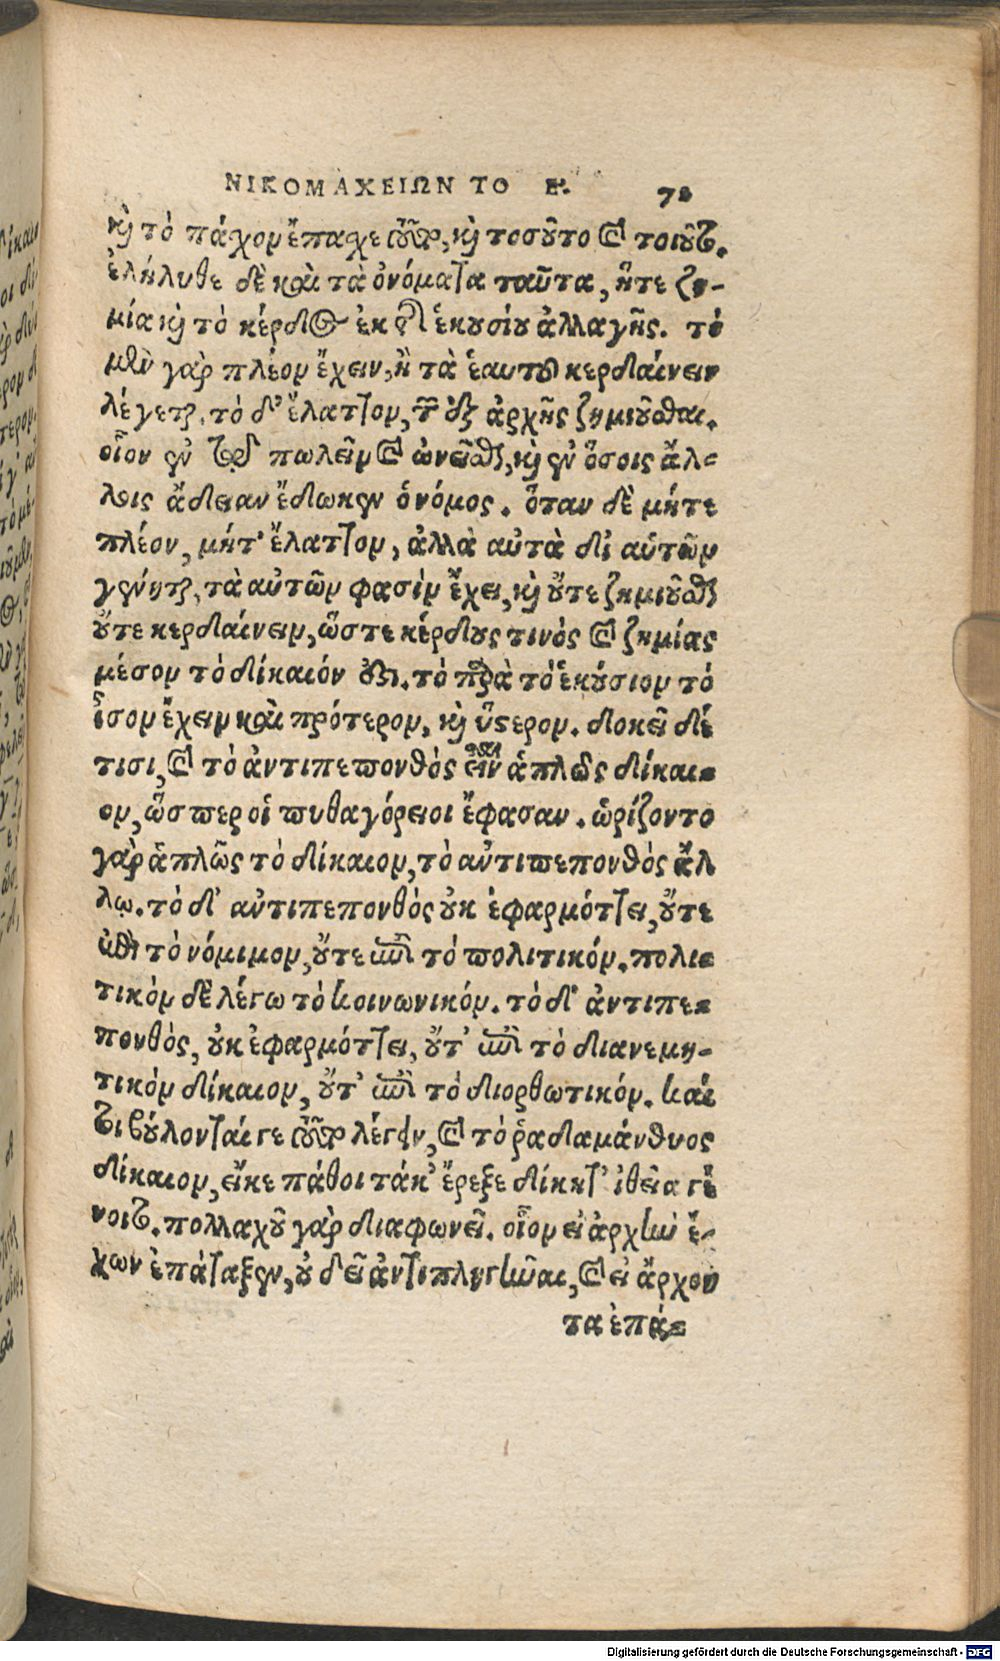 ΝΙΚΟΜΑΧΕΙΩΝ ΤΟ Ε.
καὶ τὸ πάχον ἔπαχε τοῦτο, καὶ τοσοῦτο καὶ τοιοῦτο.
ἐλήλυθε δὲ καὶ τὰ ὀνόματα ταῦτα, ἥτε ζη-
μία καὶ τὸ κέρδος ἐκ τῆς ἑκουσίου ἀλλαγῆς. τὸ
μὲν γὰρ πλέον ἔχειν, ἢ τὰ ἑαυτοῦ κερδαίνειν
λέγεται, τὸ δ' ἔλαττον, τῶν ἐξ ἀρχῆς ζημιοῦσθαι.
οἷον ἐν τῷ πωλεῖν καὶ ὠνεῖσθαι, καὶ ἐν ὅσοις ἄλ=
λοις ἄδειαν ἔδωκεν ὁ νόμος. ὅταν δὲ μήτε
πλέον, μήτ' ἔλαττον, ἀλλὰ αὐτὰ δι' αὑτῶν
γένηται, τὰ αὑτῶν φασὶν ἔχει, καὶ οὔτε ζημιοῦσθαι
οὔτε κερδαίνειν, ὥστε κέρδους τινὸς καὶ ζημίας
μέσον τὸ δίκαιόν ἐστι. τὸ παρὰ τὸ ἑκούσιον τὸ
ἴσον ἔχειν καὶ πρότερον, καὶ ὕστερον. δοκεῖ δέ
τισι, καὶ τὸ ἀντιπεπονθὸς εἶναι ἁπλῶς δίκαι=
ον, ὥσπερ οἱ πυθαγόρειοι ἔφασαν. ὡρίζοντο
γὰρ ἁπλῶς τὸ δίκαιον, τὸ ἀντιπεπονθὸς ἄλ
λῳ. τὸ δ' ἀντιπεπονθὸς οὐκ ἐφαρμόττει, οὔτε
ἐπὶ τὸ νόμιμον, οὔτε ἐπὶ τὸ πολιτικόν. πολι=
τικὸν δὲ λέγω τὸ κοινωνικόν. τὸ δ' ἀντιπε=
πονθὸς, οὐκ ἐφαρμόττει, οὔτ' ἐπὶ τὸ διανεμη-
τικὸν δίκαιον, οὔτ' ἐπὶ τὸ διορθωτικόν. καί
τοι βούλονταί γε τοῦτο λέγειν, καὶ τὸ ῥαδαμάνθυος
δίκαιον, εἴκε πάθοι τάκ' ἔρεξε δίκη τ' ἰθεῖα γέ
νοιτο. πολλαχοῦ γὰρ διαφωνεῖ. οἷον εἰ ἀρχὴν ἔ-
χων ἐπάταξεν, οὐ δεῖ ἀντιπληγῆναι, καὶ εἰ ἄρχον
τα ἐπά=
Digitalisierung gefördert durch die Deutsche Forschungsgemeinschaft - DFG